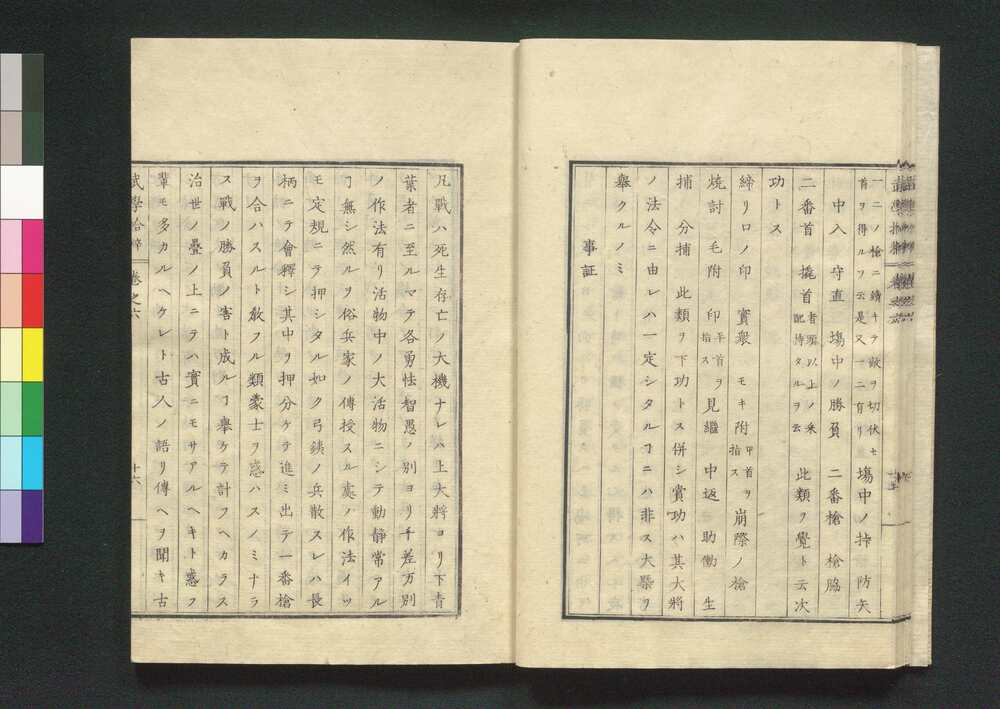 一二ノ槍ニ續キテ敵ヲ切伏セ
首ヲ得ルヲ云是又一二有リ
塲中ノ働 防矢
中入 守直 塲中ノ勝負 二番槍 槍脇
二番首 撓首 者頭以上ノ釆配持タルヲ云 此類ヲ覺ト云次
功トス
締リロノ印 實衆 モキ附 甲首ヲ指ス 崩際ノ槍
焼討 毛附 印 平首ヲ指ス 見繼 中返 助働 生
捕 分捕 此類ヲ下功トス併シ賞功ハ其大將
ノ法令ニ由レハ一定シタルヿニハ非ス大槩ヲ
擧クルノミ
事証
凡戰ハ死生存亡ノ大機ナレハ上大將ヨリ下青
葉者ニ至ルマテ各勇怯智愚ノ別ヨリ千差万別
ノ作法有リ活物中ノ大活物ニシテ動静常アル
ヿ無シ然ルヲ俗兵家ノ傳授スル處ノ作法イツ
モ定規ニテ押シタル如ク弓銕ノ兵散スレハ長
柄ニテ會釋シ其中ヲ押分ケテ進ミ出テ一番槍
ヲ合ハスルト敎フル類蒙士ヲ惑ハスノミナラ
ス戰ノ勝負ノ害ト成ルヿ擧ケテ計フヘカラス
治世ノ疊ノ上ニテハ實ニモサアルヘキト惑フ
輩モ多カルヘケレト古人ノ語リ傳ヘヲ聞キ古
武學拾粹 卷之六 十六